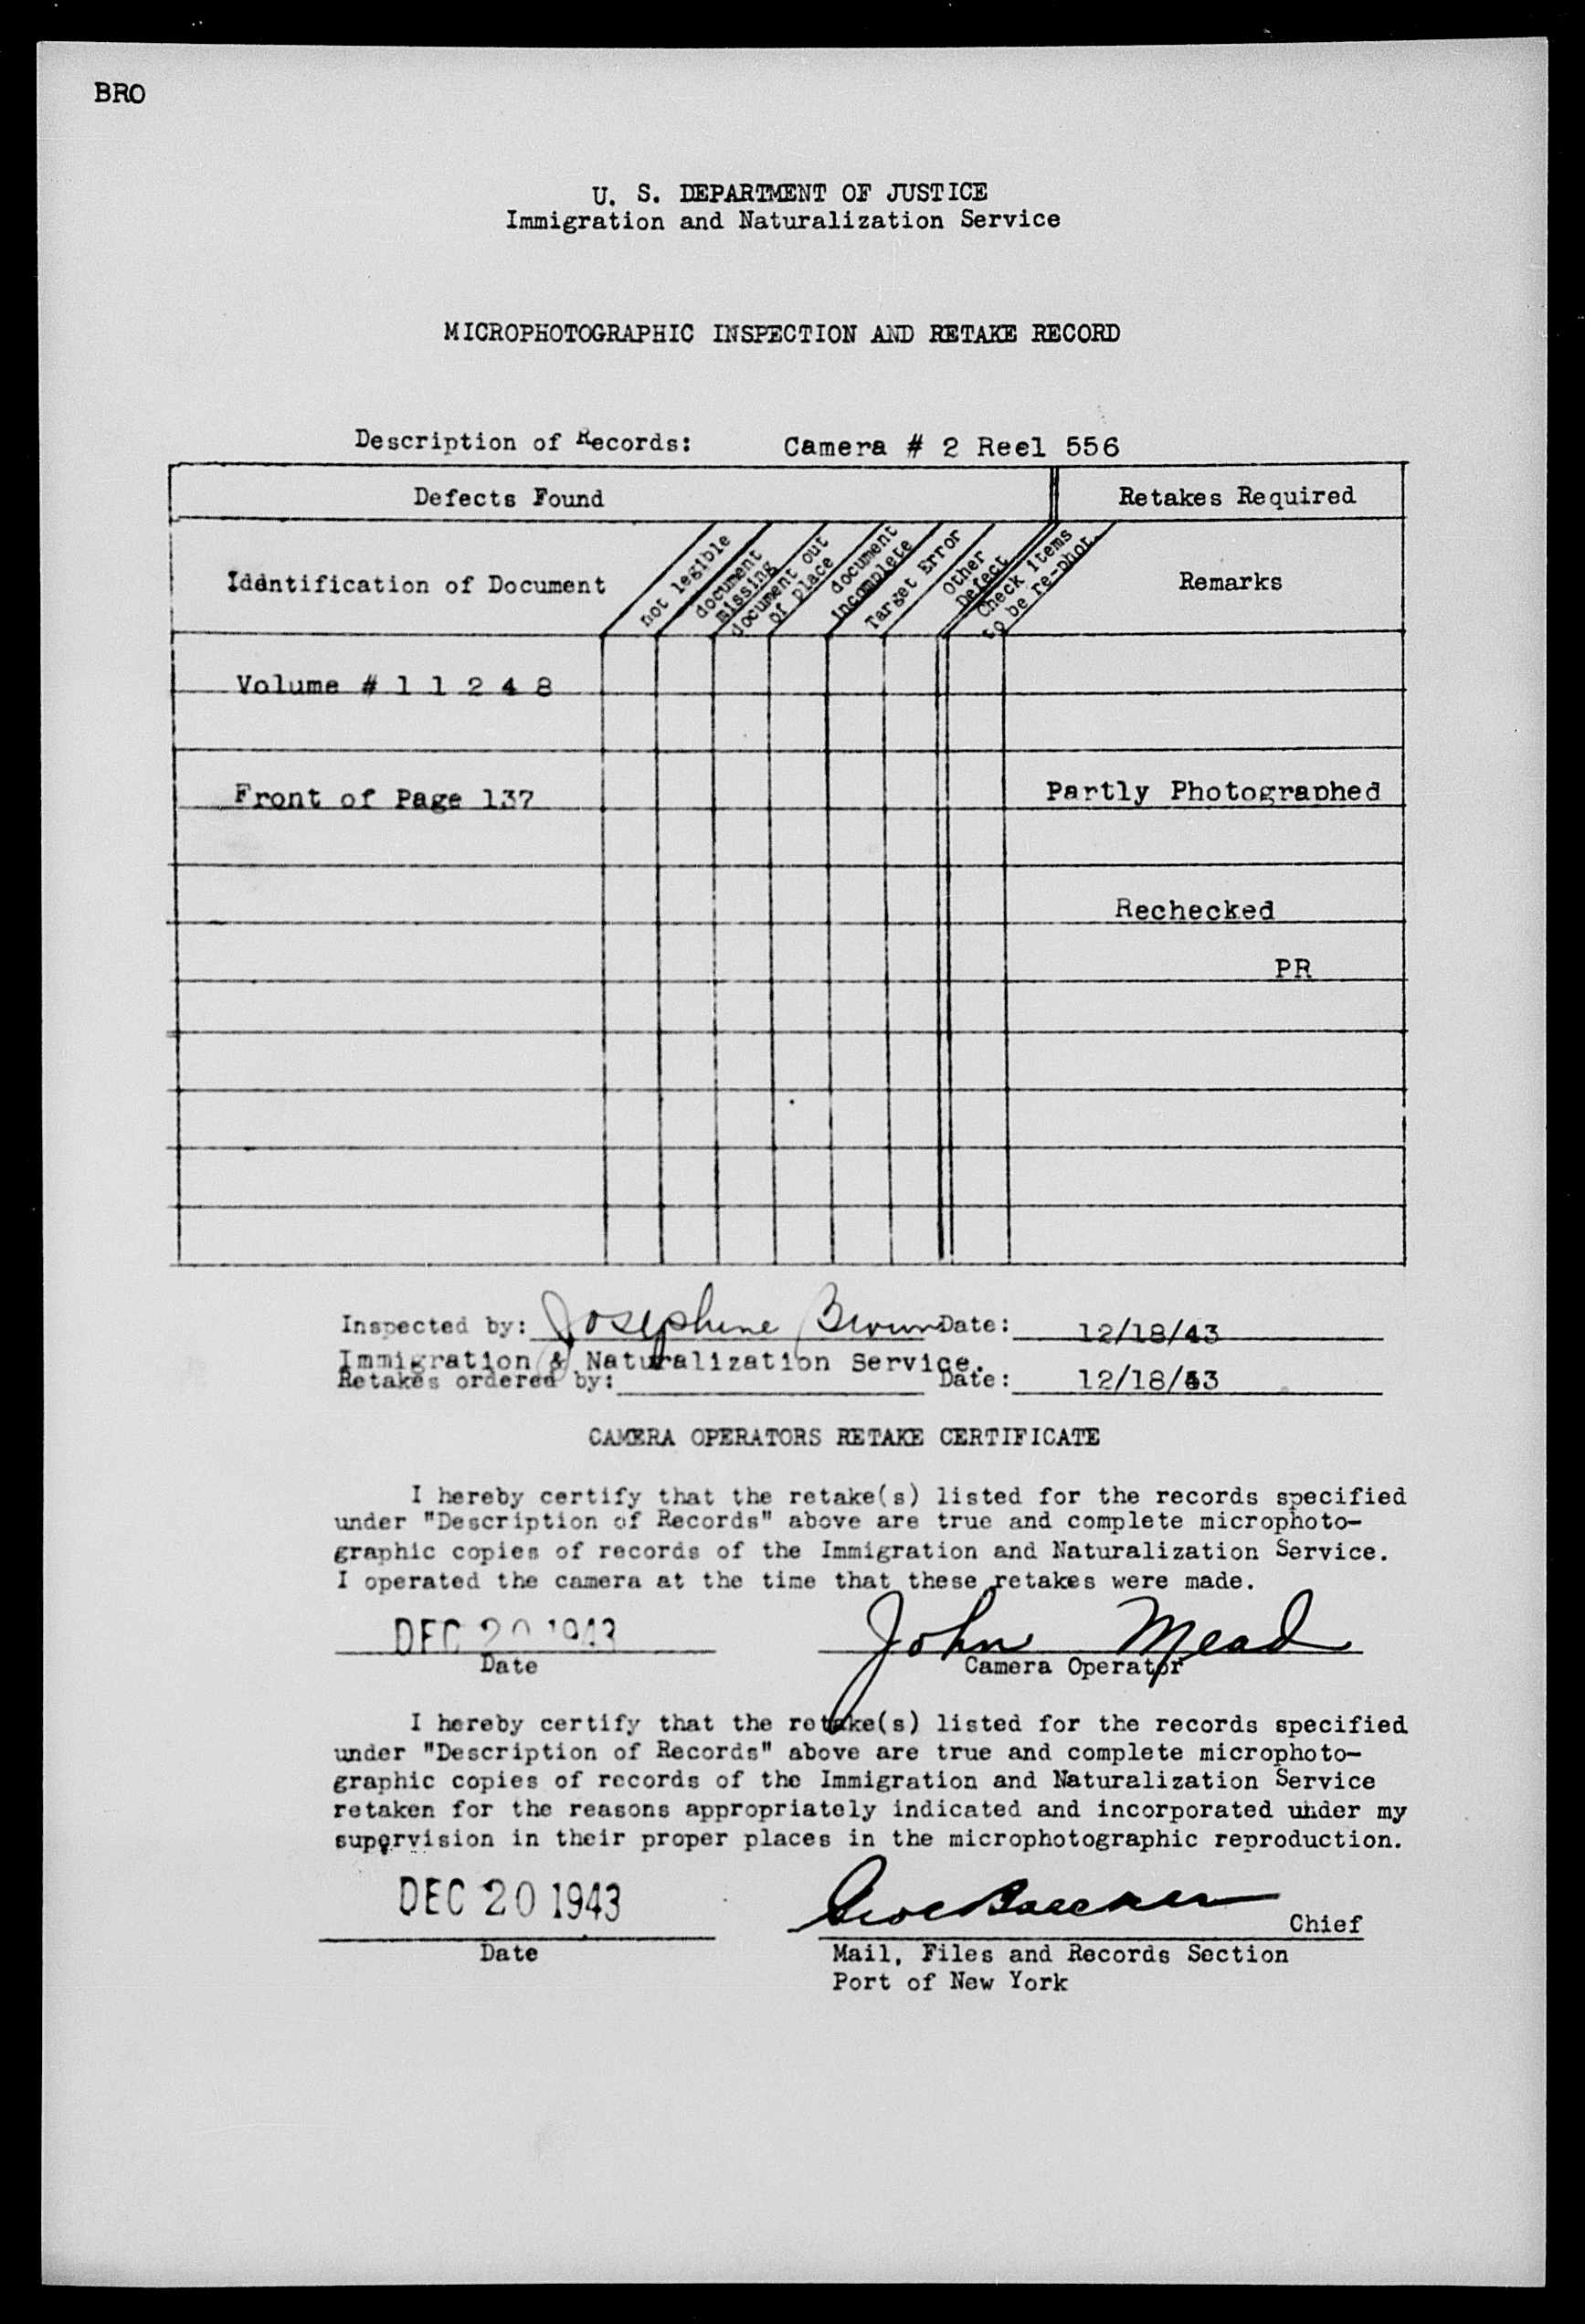 BRO
U. S. DEPARTMENT OF JUSTICE
Immigration and Naturalization Service
MICROPHOTOGRAPHIC INSPECTION AND RETAKE RECORD
Description of Records: Camera # 2 Reel 556
Defects Found Retakes Required
Identification of Document
not legible
document
missing
document out
of place
document
incomplete
Target Error
Other
Defect
Check items
to be re-phot.
Remarks
Volume # 1 1 2 4 8
Front of Page 137 Partly Photographed
Rechecked
PR
Inspected by: Josephine Brown Date: 12/18/43
Immigration & Naturalization Service.
Retakes ordered by: Date: 12/18/43
CAMERA OPERATORS RETAKE CERTIFICATE
I hereby certify that the retake(s) listed for the records specified
under "Description of Records" above are true and complete microphoto-
graphic copies of records of the Immigration and Naturalization Service.
I operated the camera at the time that these retakes were made.
DEC 20 1943 John Mead
Date Camera Operator
I hereby certify that the retake(s) listed for the records specified
under "Description of Records" above are true and complete microphoto-
graphic copies of records of the Immigration and Naturalization Service
retaken for the reasons appropriately indicated and incorporated under my
supervision in their proper places in the microphotographic reproduction.
DEC 20 1943
Chief
Date Mail, Files and Records Section
Port of New York